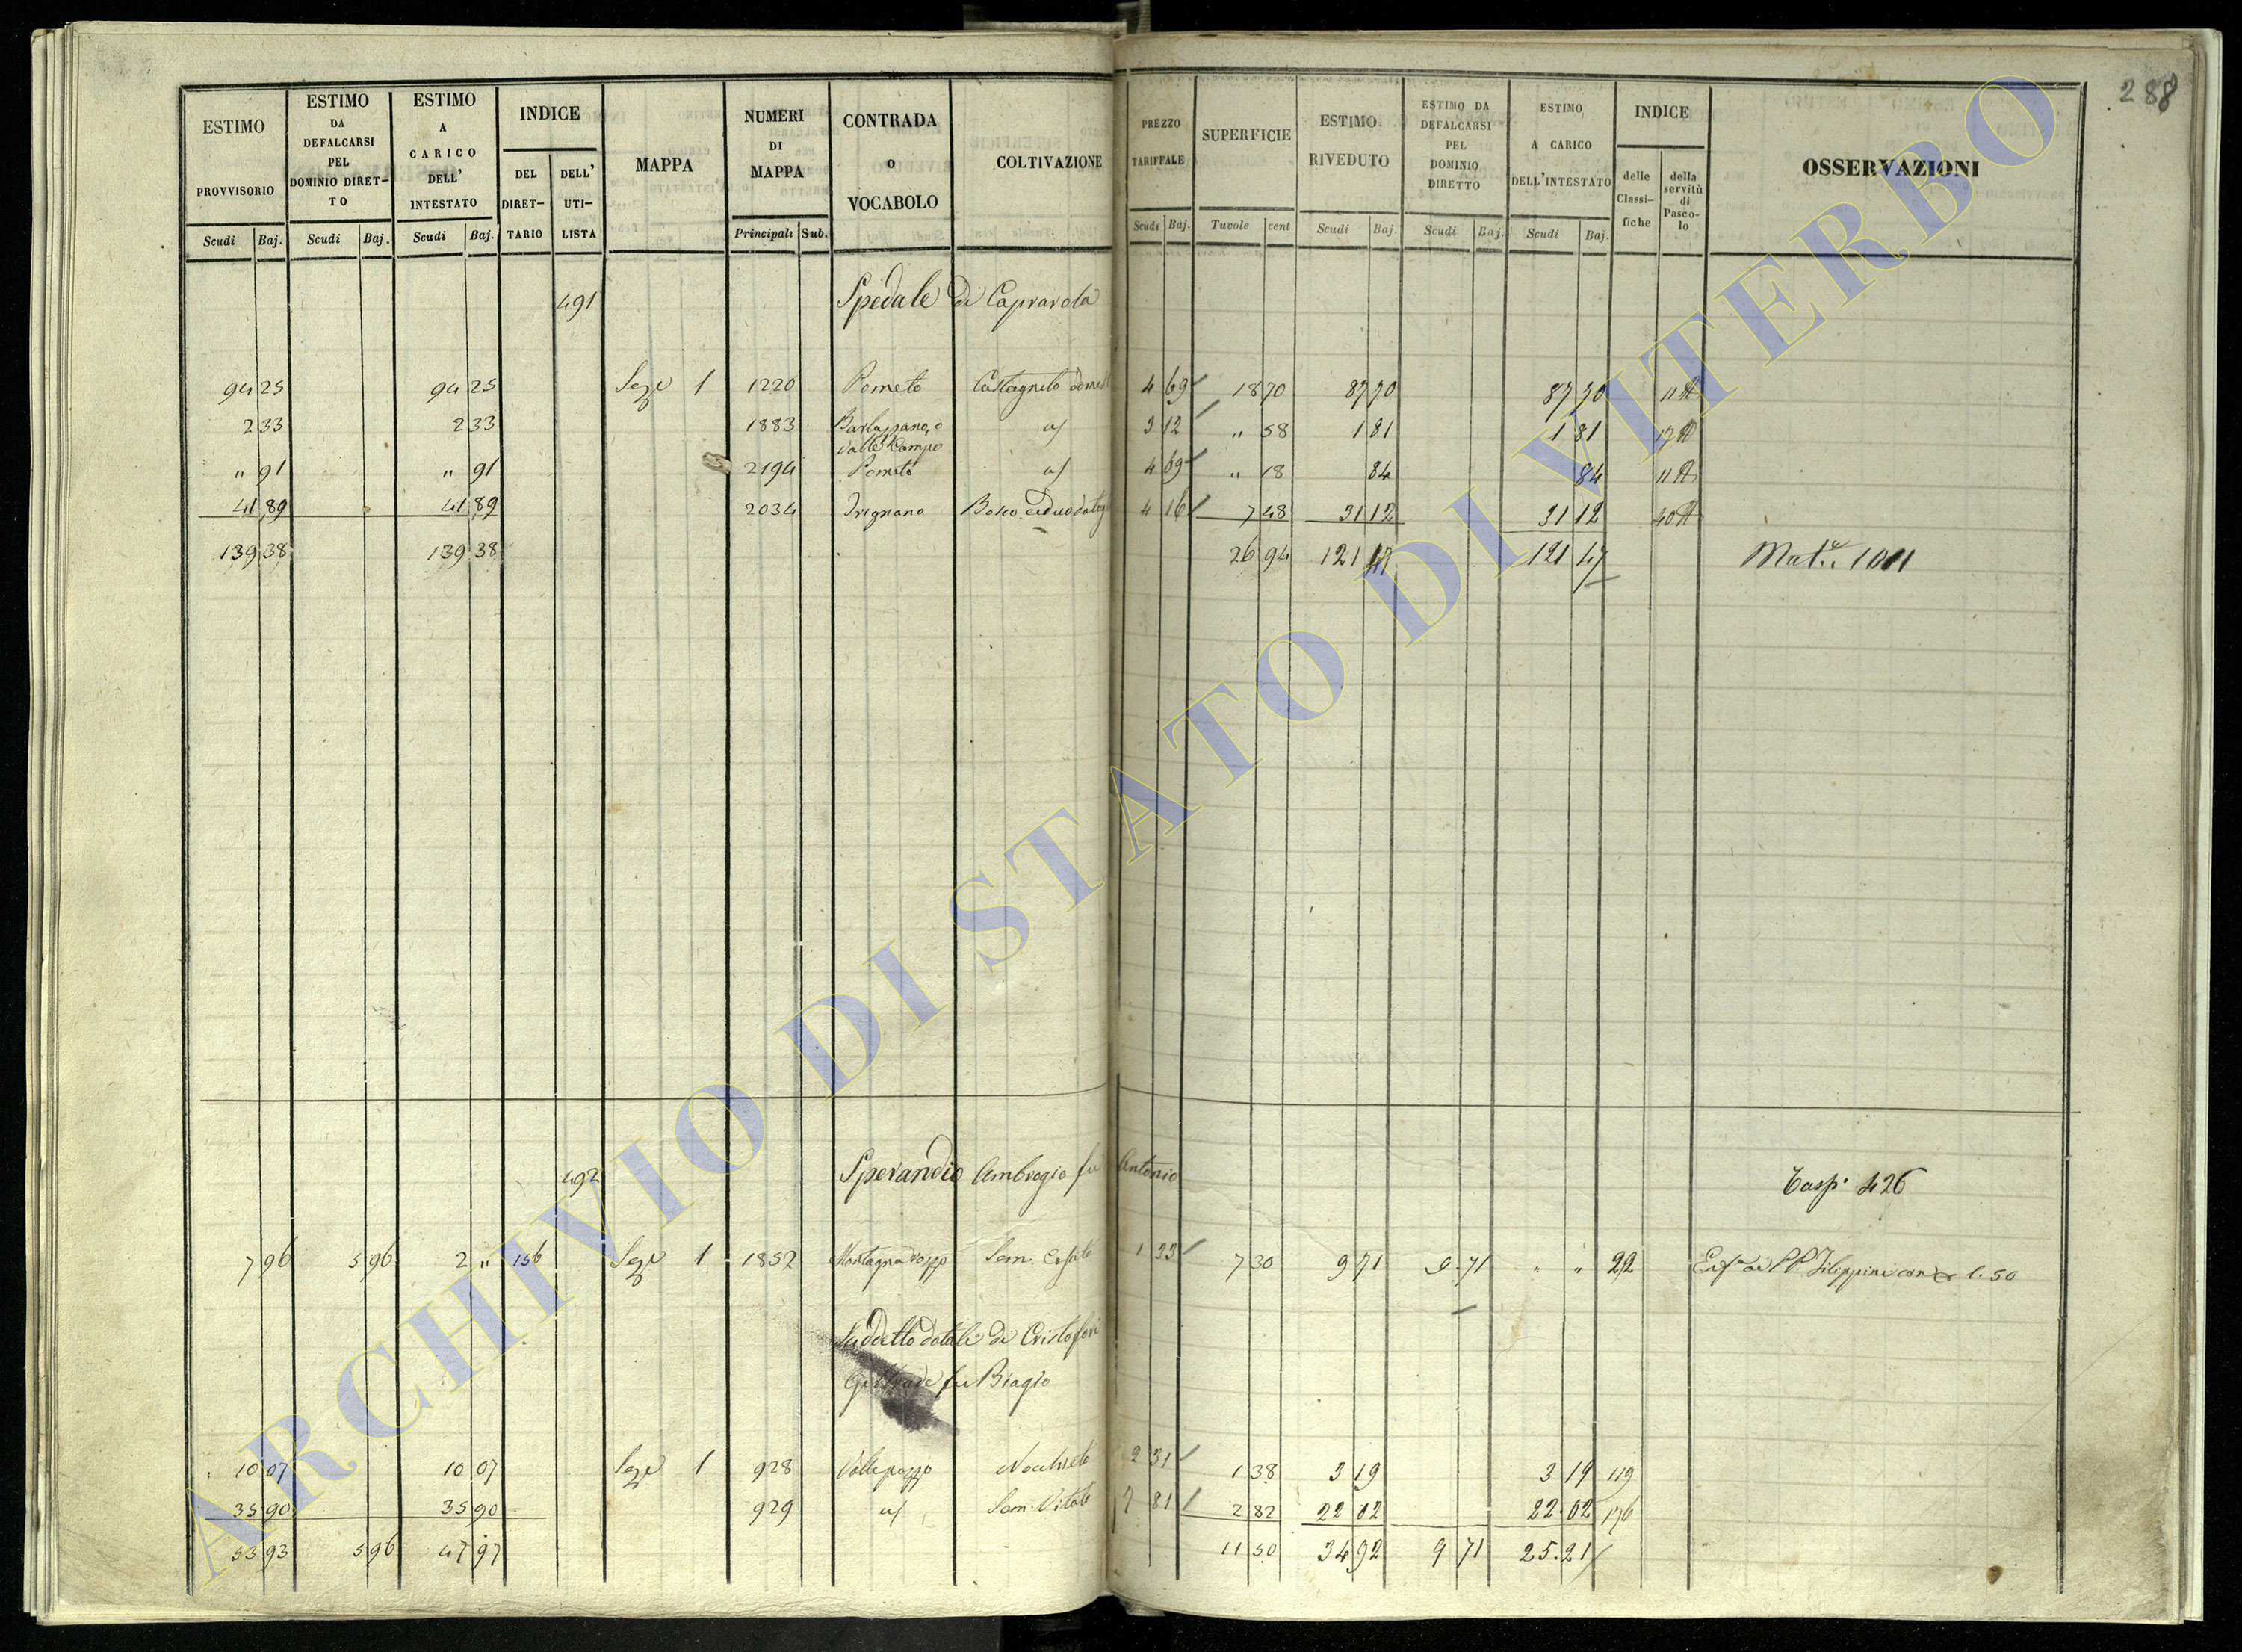 288
ESTIMO PROVVISORIO
ESTIMO DA DEFALCARSI PEL DOMINIO DIRET-TO
ESTIMO A CARICO DELL' INTESTATO
INDICE
DEL DIRET-TARIO
DELL' UTI-LISTA
MAPPA
NUMERI DI MAPPA
CONTRADA o VOCABOLO
COLTIVAZIONE
PREZZO TARIFFALE
SUPERFICIE
ESTIMO RIVEDUTO
ESTIMO DA DEFALCARSI PEL DOMINIO DIRETTO
ESTIMO A CARICO DELL'INTESTATO
INDICE
delle Classi-fiche
della servitù di Pasco-lo
OSSERVAZIONI
Scudi Baj. Scudi Baj. Scudi Baj. Principali Sub. Scudi Baj. Tavole cent Scudi Baj. Scudi Baj. Scudi Baj.
491 Spedale di Caprarola
94 25 94 25 Sez 1 1220 Pometo Castagneto 4 69 18 70 87 70 87 70 11
2 33 2 33 1883 3 12 " 58 1 81 1 81 17
Valle Campo
" 91 " 91 2194 Pometo 4 69 " 18 84 84 11
41 89 41 89 2034 Trignano Bosco ceduo 4 16 7 48 31 12 31 12 40
139 38 139 38 26 94 121 47 121 47 1011
492 Sperandio Ambrogio fu Antonio 426
7 96 5 96 2 " 156 Sez 1 1852 Sem. 1 33 7 30 9 71 9.71 " " 22 PP. Filippini 1.50
Suddetto dotale di Cristofori
fu Biagio
10 07 10 07 Sez 1 928 Vallepozzo 2 31 1 38 3 19 3 19 119
35 90 35 90 929 Sem. Vitato 7 81 2 82 22 02 22.02 176
53 93 5 96 47 97 11 50 34 92 9 71 25.21
ARCHIVIO DI STATO DI VITERBO